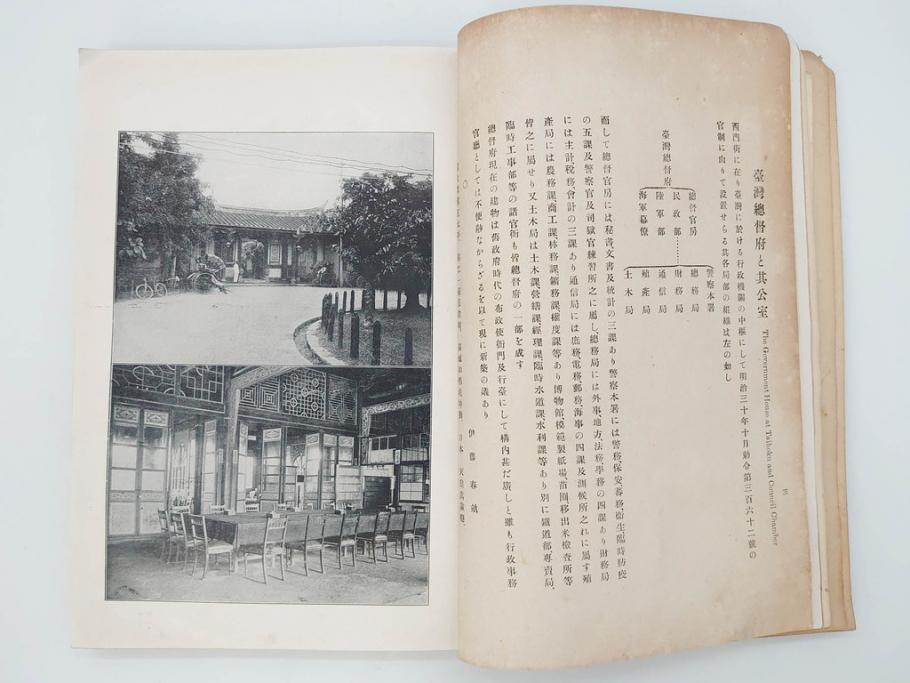 臺灣總督府と其公室
The Government House at Taihoku and Council Chamber
西門街に在り臺灣に於ける行政機關の中樞にして明治三十年十月勅令第三百六十二號の
官制に由りて設置せらる其各局部の組織は左の如し
臺灣總督府
總督官房
民政部
陸軍部
海軍幕僚
警察本署
總務局
財務局
通信局
殖產局
土木局
而して總督官房には秘書、文書及統計の三課あり警察本署には警務、保安、蕃務、衞生、臨時防疫
の五課及警察官及司獄官練習所之に屬し、總務局には外事、地方、法務、學務の四課あり財務局
には主計、稅務、會計の三課あり通信局には庶務、電務、郵務、海事の四課及測候所之れに屬す殖
產局には農務課、商工課、林務課、鑛務課、權度課等あり博物館、模範製紙場、苗圃、移出米檢査所等
皆之に屬せり又土木局は土木課、營繕課、經理課、臨時水道課、水利課等あり別に鐵道部、專賣局、
臨時工事部等の諸官衙も皆總督府の一部を成す
總督府現在の建物は舊政府時代の布政使衙門及行臺にして構內甚だ廣しと雖も行政事務
官廳としては不便尠なからざるを以て現に新築の議あり